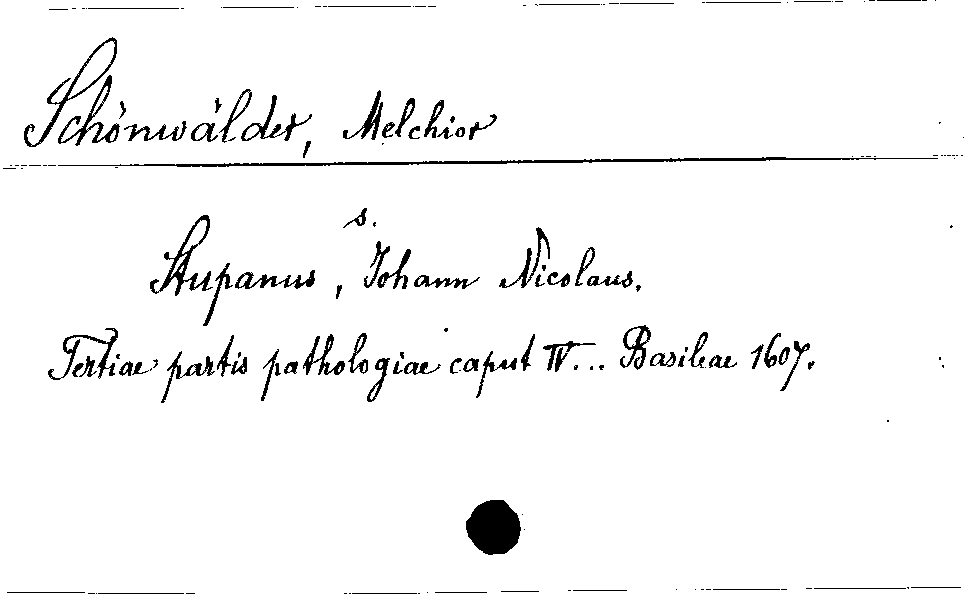 Schönwälder, Melchior
s.
Stupanus, Johann Nicolaus.
Tertiae partis pathologiae caput IV... Basileae 1607.